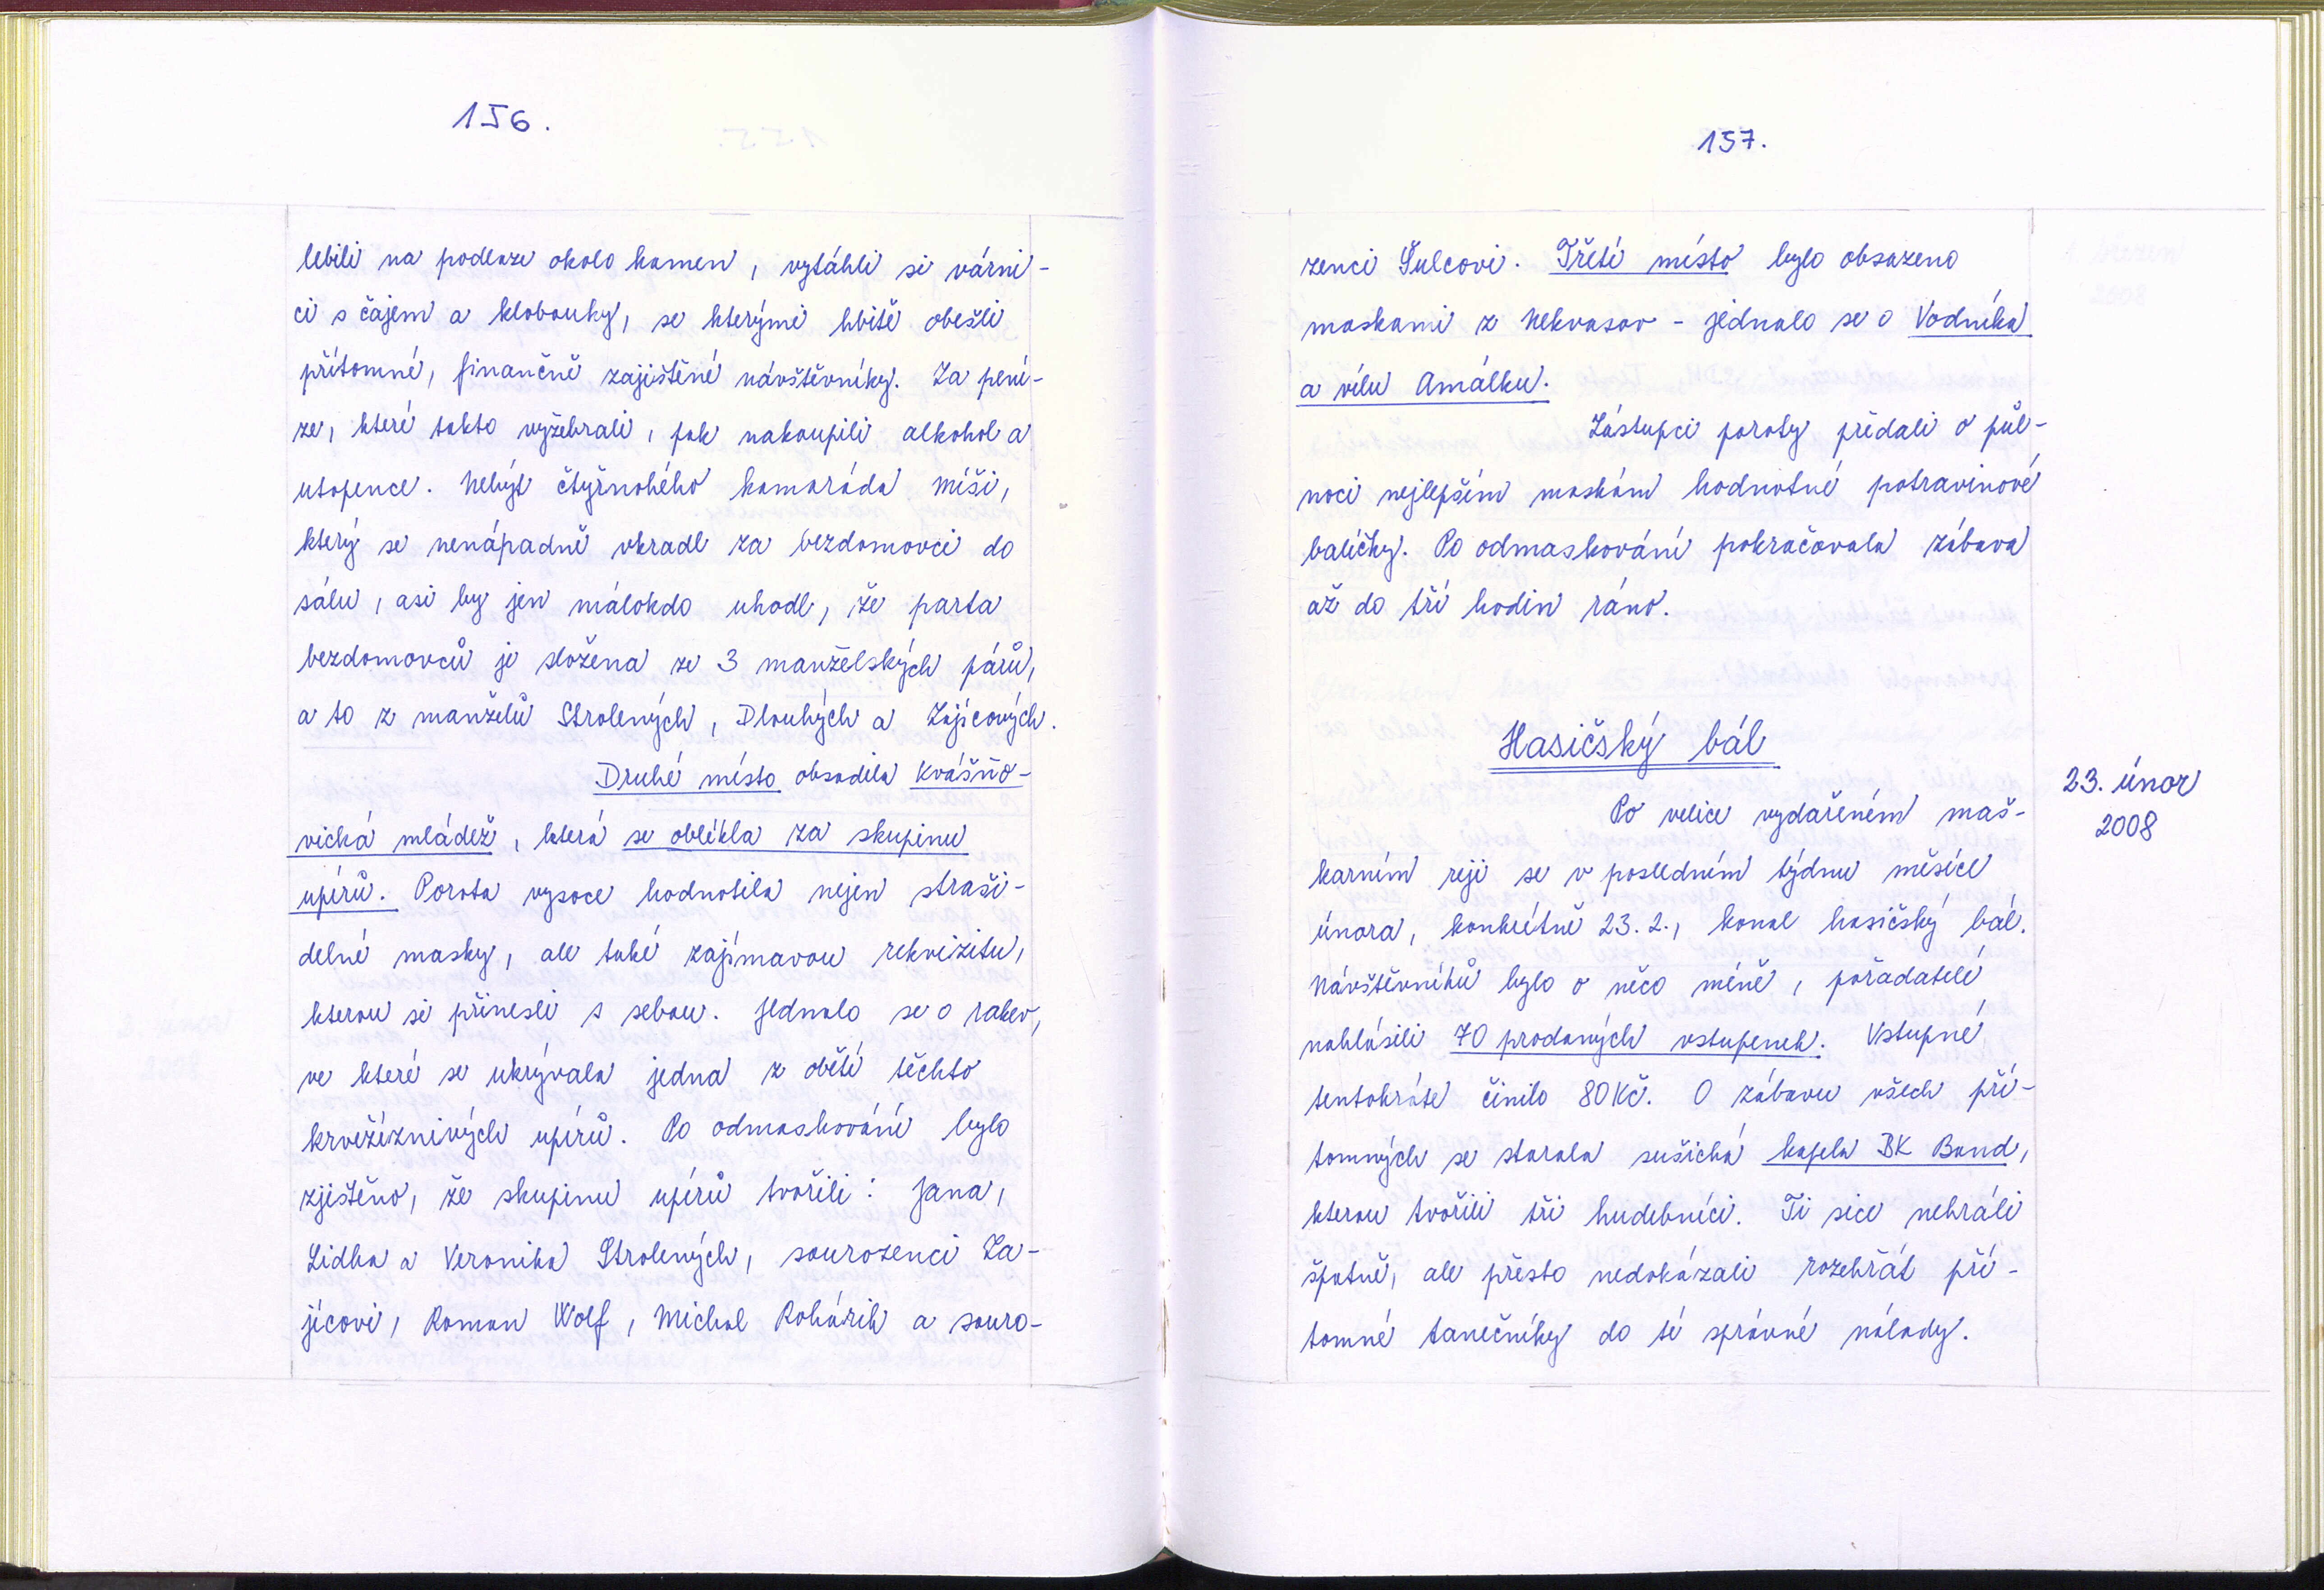 156.
lebili na podlaze okolo kamen, vytáhli si várni-
ci s čajem a klobouky, se kterými hbitě obešli
přítomné, finančně zajištěné návštěvníky. Za pení-
ze, které takto vyžebrali, pak nakoupili alkohol a
utopence. Nebýt čtyřnohého kamaráda Míši,
který se nenápadně vkradl za bezdomovci do
sálu, asi by jen málokdo uhodl, že parta
bezdomovců je složena ze 3 manželských párů,
a to z manželů Strolených, Dlouhých a Zajícových.
Druhé místo obsadila kvášňo-
vická mládež, která se oblékla za skupinu
upírů. Porota vysoce hodnotila nejen straši-
delné masky, ale také zajímavou rekvizitu,
kterou si přinesli s sebou. Jednalo se o rakev,
ve které se ukrývala jedna z obětí těchto
krvežíznivých upírů. Po odmaskování bylo
zjištěno, že skupinu upírů tvořili: Jana,
Lidka a Veronika Strolených, sourozenci Za-
jícovi, Roman Wolf, Michal Rohárik a souro-
157.
zenci Šulcovi. Třetí místo bylo obsazeno
maskami z Nekvasov - jednalo se o Vodníka
a vílu Amálku.
Zástupci poroty předali o půl-
noci nejlepším maskám hodnotné potravinové
balíčky. Po odmaskování pokračovala zábava
až do tří hodin ráno.
Hasičský bál
23. únor
2008
Po velice vydařeném maš-
karním reji se v posledním týdnu měsíce
února, konkrétně 23.2., konal hasičský bál.
Návštěvníků bylo o něco méně, pořadatelé
nahlásili 70 prodaných vstupenek. Vstupné
tentokráte činilo 80Kč. O zábavu všech pří-
tomných se starala sušická kapela BK Band,
kterou tvořili tři hudebníci. Ti sice nehráli
špatně, ale přesto nedokázali rozehřát pří-
tomné tanečníky do té správné nálady.